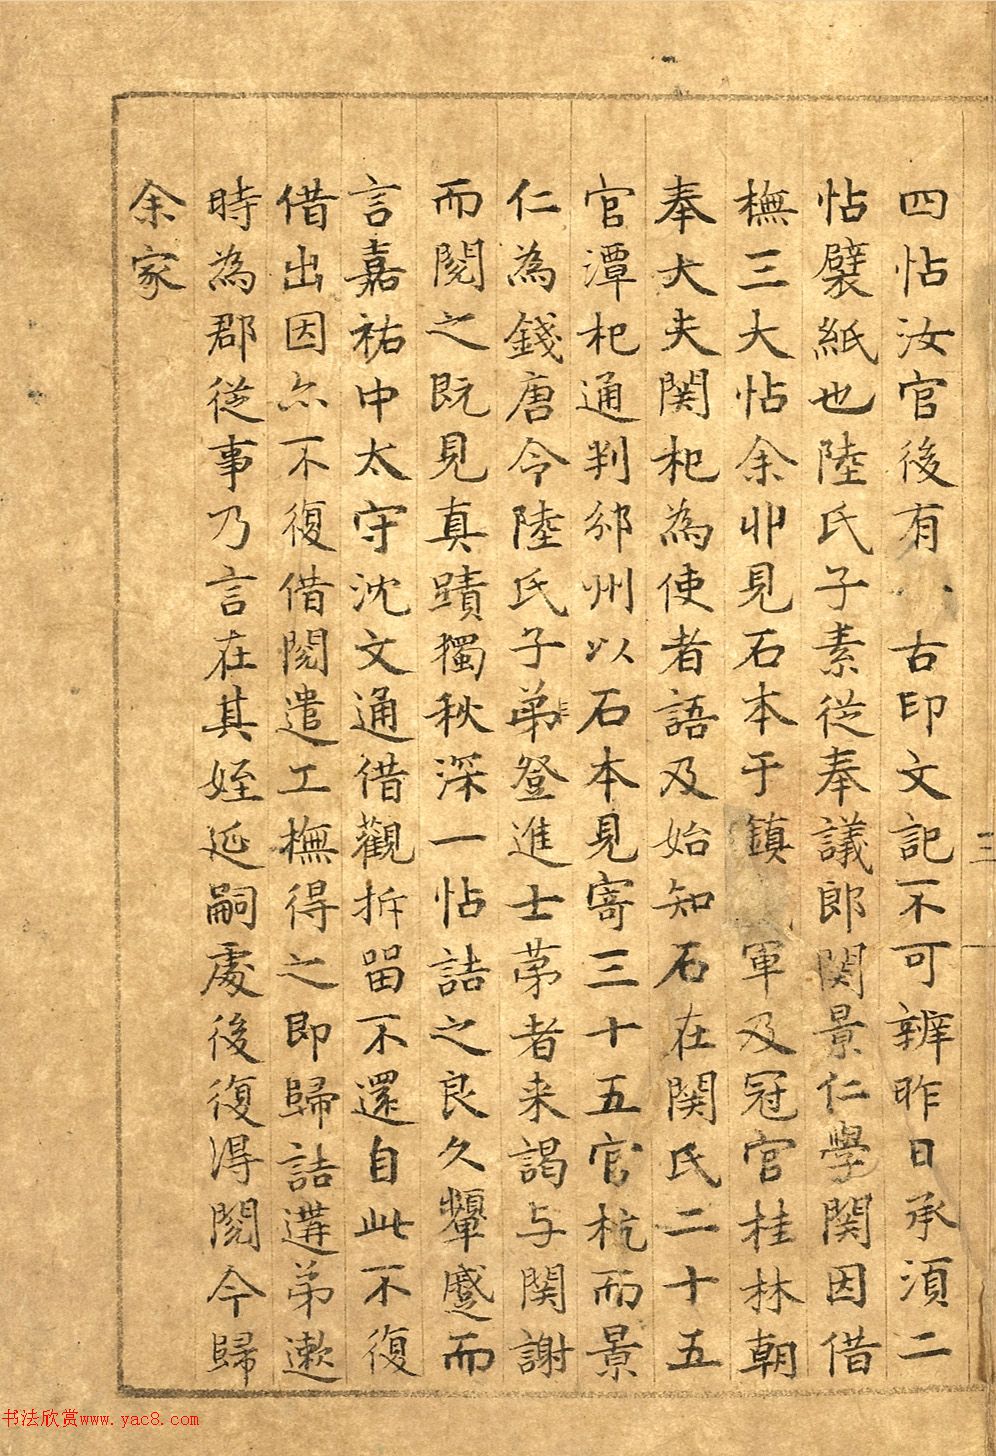 四帖汝官後有 古印文記不可辨昨日承須二
帖襞紙也陸氏子素從奉議郎関景仁學関因借
橅三大帖余丱見石本于鎮 軍及冠官桂林朝
奉大夫関杞為使者語及始知石在関氏二十五
官潭杞通判邠州以石本見寄三十五官杭而景
仁為錢唐令陸氏子弟登進士苐者来謁与関謝
而閱之既見真蹟獨秋深一帖詰之良久顰蹙而
言嘉祐中太守沈文通借觀拆留不還自此不復
借出因尒不復借閱遣工橅得之即歸詰遘弟漱
時為郡從事乃言在其姪延嗣處後復得閱今歸
余家
三
书法欣赏www.yac8.com